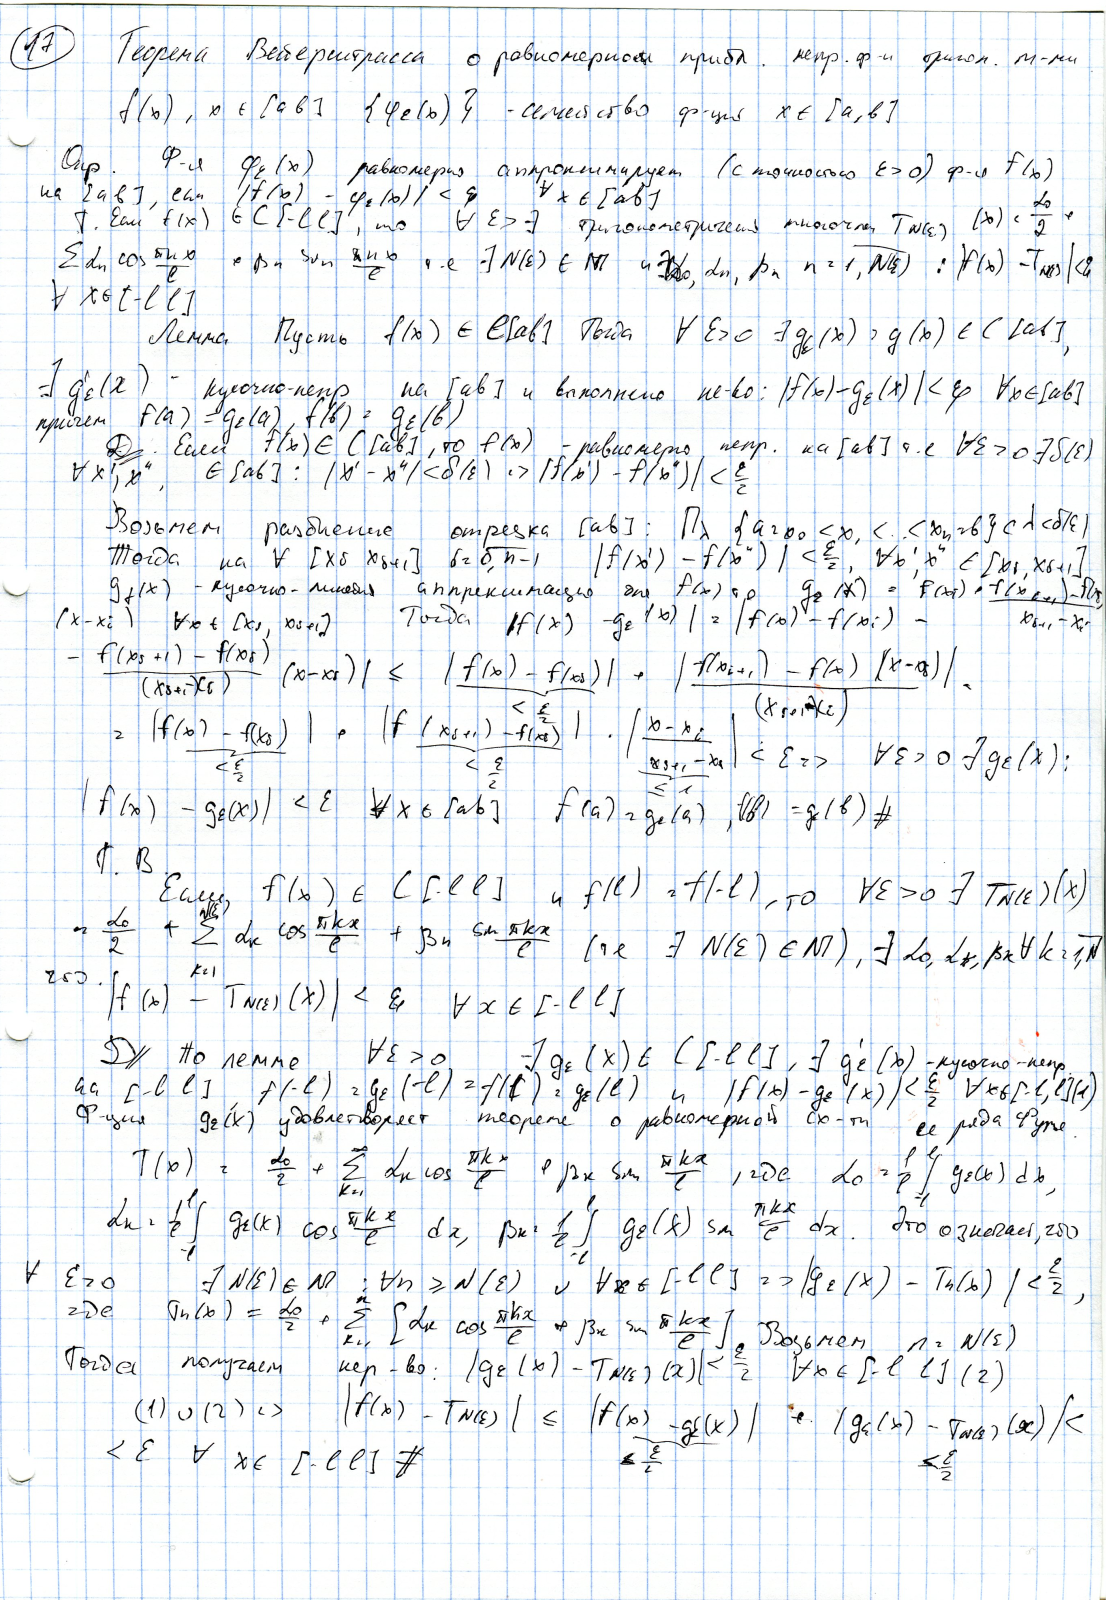 17 Теорема Вейерштрасса о равномерном прибл. непр. ф-и тригон. м-ми
f(x), x ∈ [ab] {φε(x)} - семейство ф-ций x ∈ [a,b]
Опр. Ф-я φε(x) равномерно аппроксимирует (с точностью ε>0) ф-ю f(x)
на [ab], если |f(x) - φε(x)| < ε ∀x ∈ [ab]
Т. Если f(x) ∈ C[-l l], то ∀ε>0 ∃ тригонометрический многочлен T_N(ε)(x) = α0/2 +
Σ αn cos πnx/l + βn sin πnx/l т.е ∃N(ε) ∈ N и α0, αn, βn n=1,N(ε) : |f(x) - T_N(ε)| < ε
∀ x ∈ [-l l]
Лемма Пусть f(x) ∈ C[ab] Тогда ∀ε>0 ∃gε(x) : g(x) ∈ C[ab],
∃ g'ε(x) - кусочно-непр на [ab] и выполнено не-во: |f(x)-gε(x)| < ε ∀x∈[ab]
причем f(a) = gε(a), f(b) = gε(b)
Д// Если f(x) ∈ C[ab], то f(x) - равномерно непр. на [ab] т.е ∀ε>0 ∃δ(ε)
∀x', x'' ∈ [ab] : |x' - x''| < δ(ε) => |f(x') - f(x'')| < ε/2
Возьмем разбиение отрезка [ab] : Πλ {a=x0 < x1 < .. < xn=b} с λ<δ(ε)
Тогда на ∀ [xs xs+1] s=0,n-1 |f(x') - f(x'')| < ε/2, ∀x', x'' ∈ [xs, xs+1]
gε(x) - кусочно-линейн аппроксимацию для f(x) gε(x) = f(xs) + f(xs+1) - f(xs) / xs+1 - xs
(x-xi) ∀x∈[xs, xs+1] Тогда |f(x) - gε(x)| = |f(x) - f(xi) -
- f(xs+1) - f(xs) / (xs+1-xs) (x-xs)| ≤ |f(x) - f(xs)| + |f(xi+1) - f(x) (x-xs) / (xs+1-xi)|
= |f(x) - f(xs)| + |f(xs+1) - f(xs)| · |x-xi / xs+1-xs| < ε => ∀ε>0 ∃gε(x):
< ε/2 < ε/2 ≤ 1
|f(x) - gε(x)| < ε ∀x ∈ [ab] f(a) = gε(a), f(b) = gε(b) #
Т. В
Если f(x) ∈ C[-l l] и f(l) = f(-l), то ∀ε>0 ∃ T_N(ε)(x)
= α0/2 + Σ_{k=1}^{N(ε)} αk cos πkx/l + βk sin πkx/l (т.е ∃ N(ε) ∈ N), ∃ α0, αk, βk ∀k=1,N
что. |f(x) - T_N(ε)(x)| < ε ∀x ∈ [-l l]
Д// По лемме ∀ε>0 ∃gε(x) ∈ C[-l l], ∃ g'ε(x) - кусочно-непр.
на [-l l] f(-l) = gε(-l) = f(l) = gε(l) и |f(x) - gε(x)| < ε/2 ∀x∈[-l, l] (1)
Ф-ция gε(x) удовлетворяет теореме о равномерной сх-ти ее ряда Фурье.
T(x) = α0/2 + Σ_{k=1}^{∞} αk cos πkx/l + βk sin πkx/l, где α0 = 1/l ∫_{-l}^{l} gε(x) dx,
αk = 1/l ∫_{-l}^{l} gε(x) cos πkx/l dx, βk = 1/l ∫_{-l}^{l} gε(x) sin πkx/l dx. Это означает, что
∀ ε>0 ∃N(ε) ∈ N : ∀n ≥ N(ε) и ∀x ∈ [-l l] => |gε(x) - Tn(x)| < ε/2,
где Tn(x) = α0/2 + Σ_{k=1}^{n} [αk cos πkx/l + βk sin πkx/l]. Возьмем n = N(ε)
Тогда получаем нер-во: |gε(x) - T_N(ε)(x)| < ε/2 ∀x ∈ [-l l] (2)
(1) и (2) => |f(x) - T_N(ε)| ≤ |f(x) - gε(x)| + |gε(x) - T_N(ε)(x)| <
≤ ε/2 ≤ ε/2
< ε ∀ x∈ [-l l] #